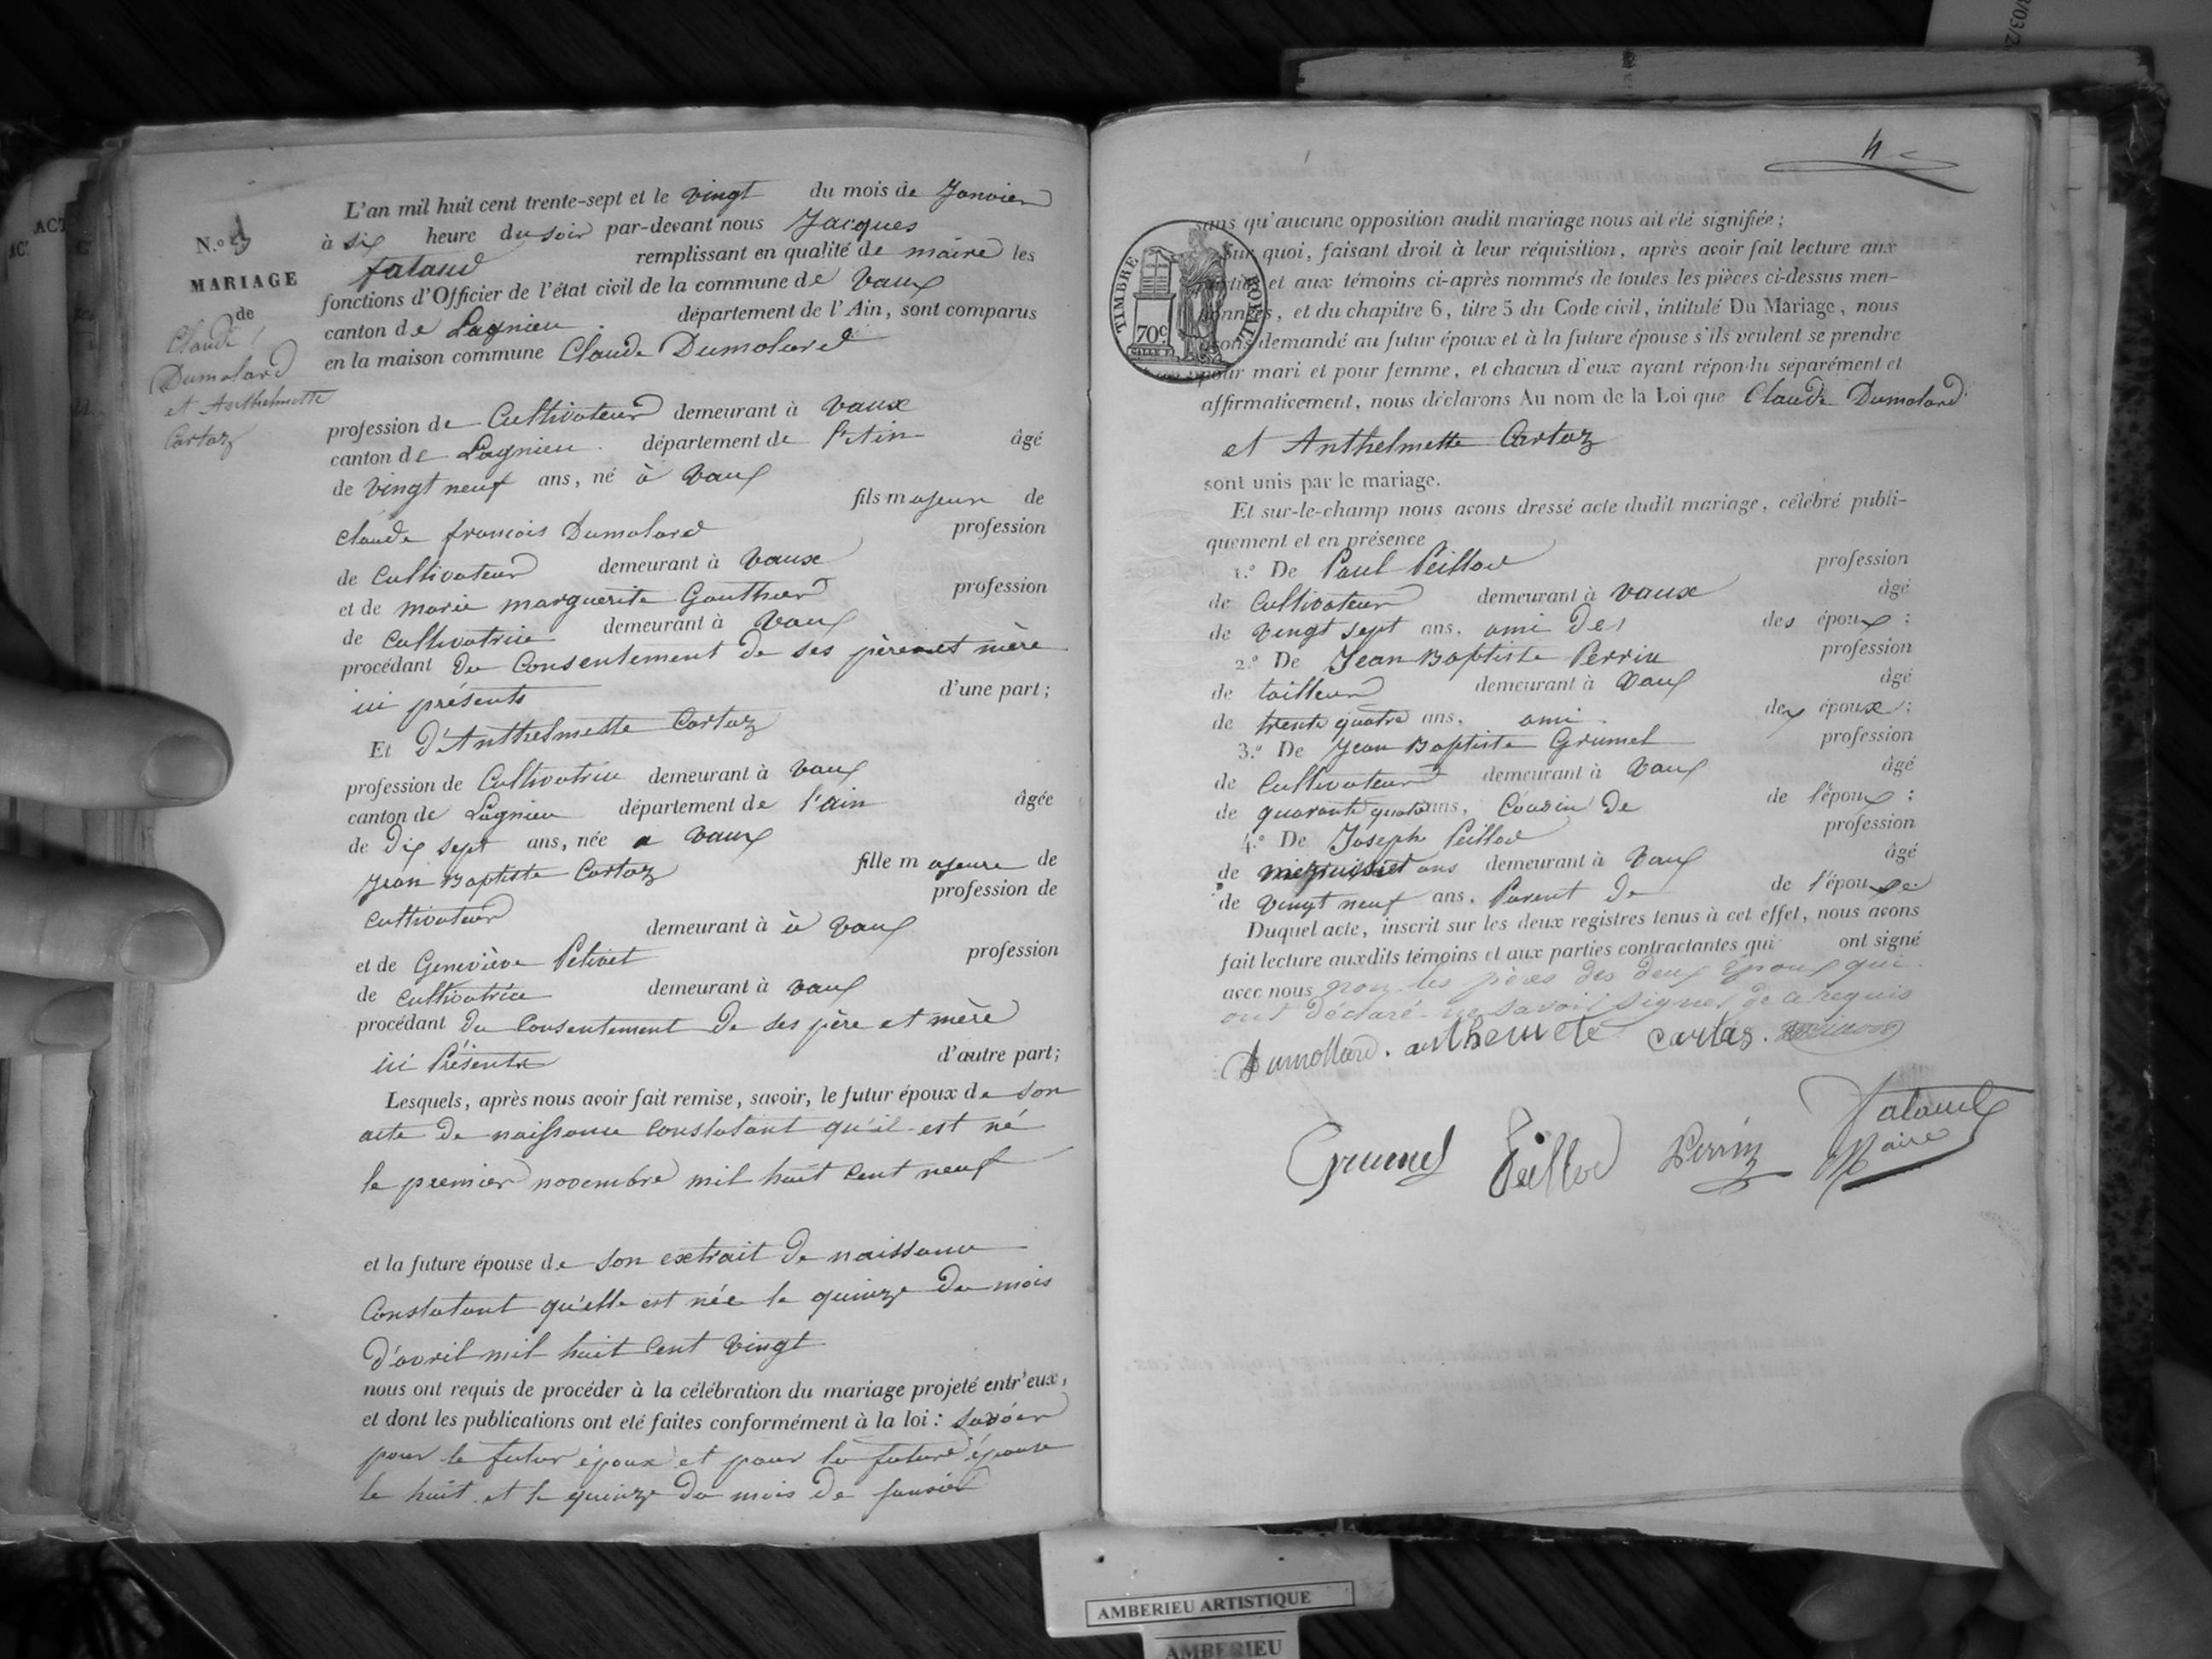 N.º 3
MARIAGE
de
Claude
Dumolard
et Anthelmette
Cartaz
L'an mil huit cent trente-sept et le vingt du mois de Janvier
à six heure du soir par-devant nous Jacques
fataud remplissant en qualité de maire les
fonctions d'Officier de l'état civil de la commune de Vaux
canton de Lagnieu département de l'Ain, sont comparus
en la maison commune Claude Dumolard
profession de Cultivateur demeurant à Vaux
canton de Lagnieu département de l'Ain âgé
de Vingt neuf ans, né à Vaux
fils majeur de
Claude francois Dumolard profession
de Cultivateur demeurant à Vaux
et de marie marguerite Gauthier profession
de Cultivatrice demeurant à Vaux
procédant du Consentement de ses père et mère
ici présents d'une part;
Et d'Anthelmette Cartaz
profession de Cultivatrice demeurant à Vaux
canton de Lagnieu département de l'ain âgée
de Dix sept ans, née a Vaux
fille majeure de
Jean Baptiste Cartaz profession de
Cultivateur
demeurant à à Vaux
et de Geneviève Pélivet profession
de Cultivatrice demeurant à Vaux
procédant du Consentement de ses père et mère
ici Présents d'autre part;
Lesquels, après nous avoir fait remise, savoir, le futur époux de son
acte de naissance Constatant qu'il est né
le premier novembre mil huit cent neuf
et la future épouse de son extrait de naissance
Constatant qu'elle est née le quinze du mois
d'avril mil huit Cent Vingt
nous ont requis de procéder à la célébration du mariage projeté entr'eux,
et dont les publications ont eté faites conformément à la loi : Savoir
pour le futur époux et pour la future épouse
le huit et le quinze du mois de janvier
4
TIMBRE ROYAL
70c.
sans qu'aucune opposition audit mariage nous ait été signifiée ;
Sur quoi, faisant droit à leur réquisition, après avoir fait lecture aux
parties et aux témoins ci-après nommés de toutes les pièces ci-dessus men-
tionnées, et du chapitre 6, titre 5 du Code civil, intitulé Du Mariage, nous
avons demandé au futur époux et à la future épouse s'ils veulent se prendre
pour mari et pour femme, et chacun d'eux ayant répondu séparément et
affirmativement, nous déclarons Au nom de la Loi que Claude Dumolard
et Anthelmette Cartaz
sont unis par le mariage.
Et sur-le-champ nous avons dressé acte dudit mariage, célébré publi-
quement et en présence
1.º De Paul Peillod profession
de Cultivateur demeurant à Vaux âgé
de vingt sept ans, ami des des époux ;
2.º De Jean Baptiste Perrin profession
de tailleur demeurant à Vaux âgé
de trente quatre ans, ami des époux ;
3.º De Jean Baptiste Grumel profession
de Cultivateur demeurant à Vaux âgé
de quarante quatre ans, Cousin de de l'époux ;
4.º De Joseph Peillod profession
de demeurant à Vaux âgé
de vingt neuf ans, Parent de de l'épouse
Duquel acte, inscrit sur les deux registres tenus à cet effet, nous avons
fait lecture auxdits témoins et aux parties contractantes qui ont signé
avec nous non les pères des deux époux qui
ont déclaré ne savoir signer de ce requis
Dumollard. anthemete cartas.
Grumel Peillod Perrin fataud
Maire
AMBERIEU ARTISTIQUE
AMBERIEU